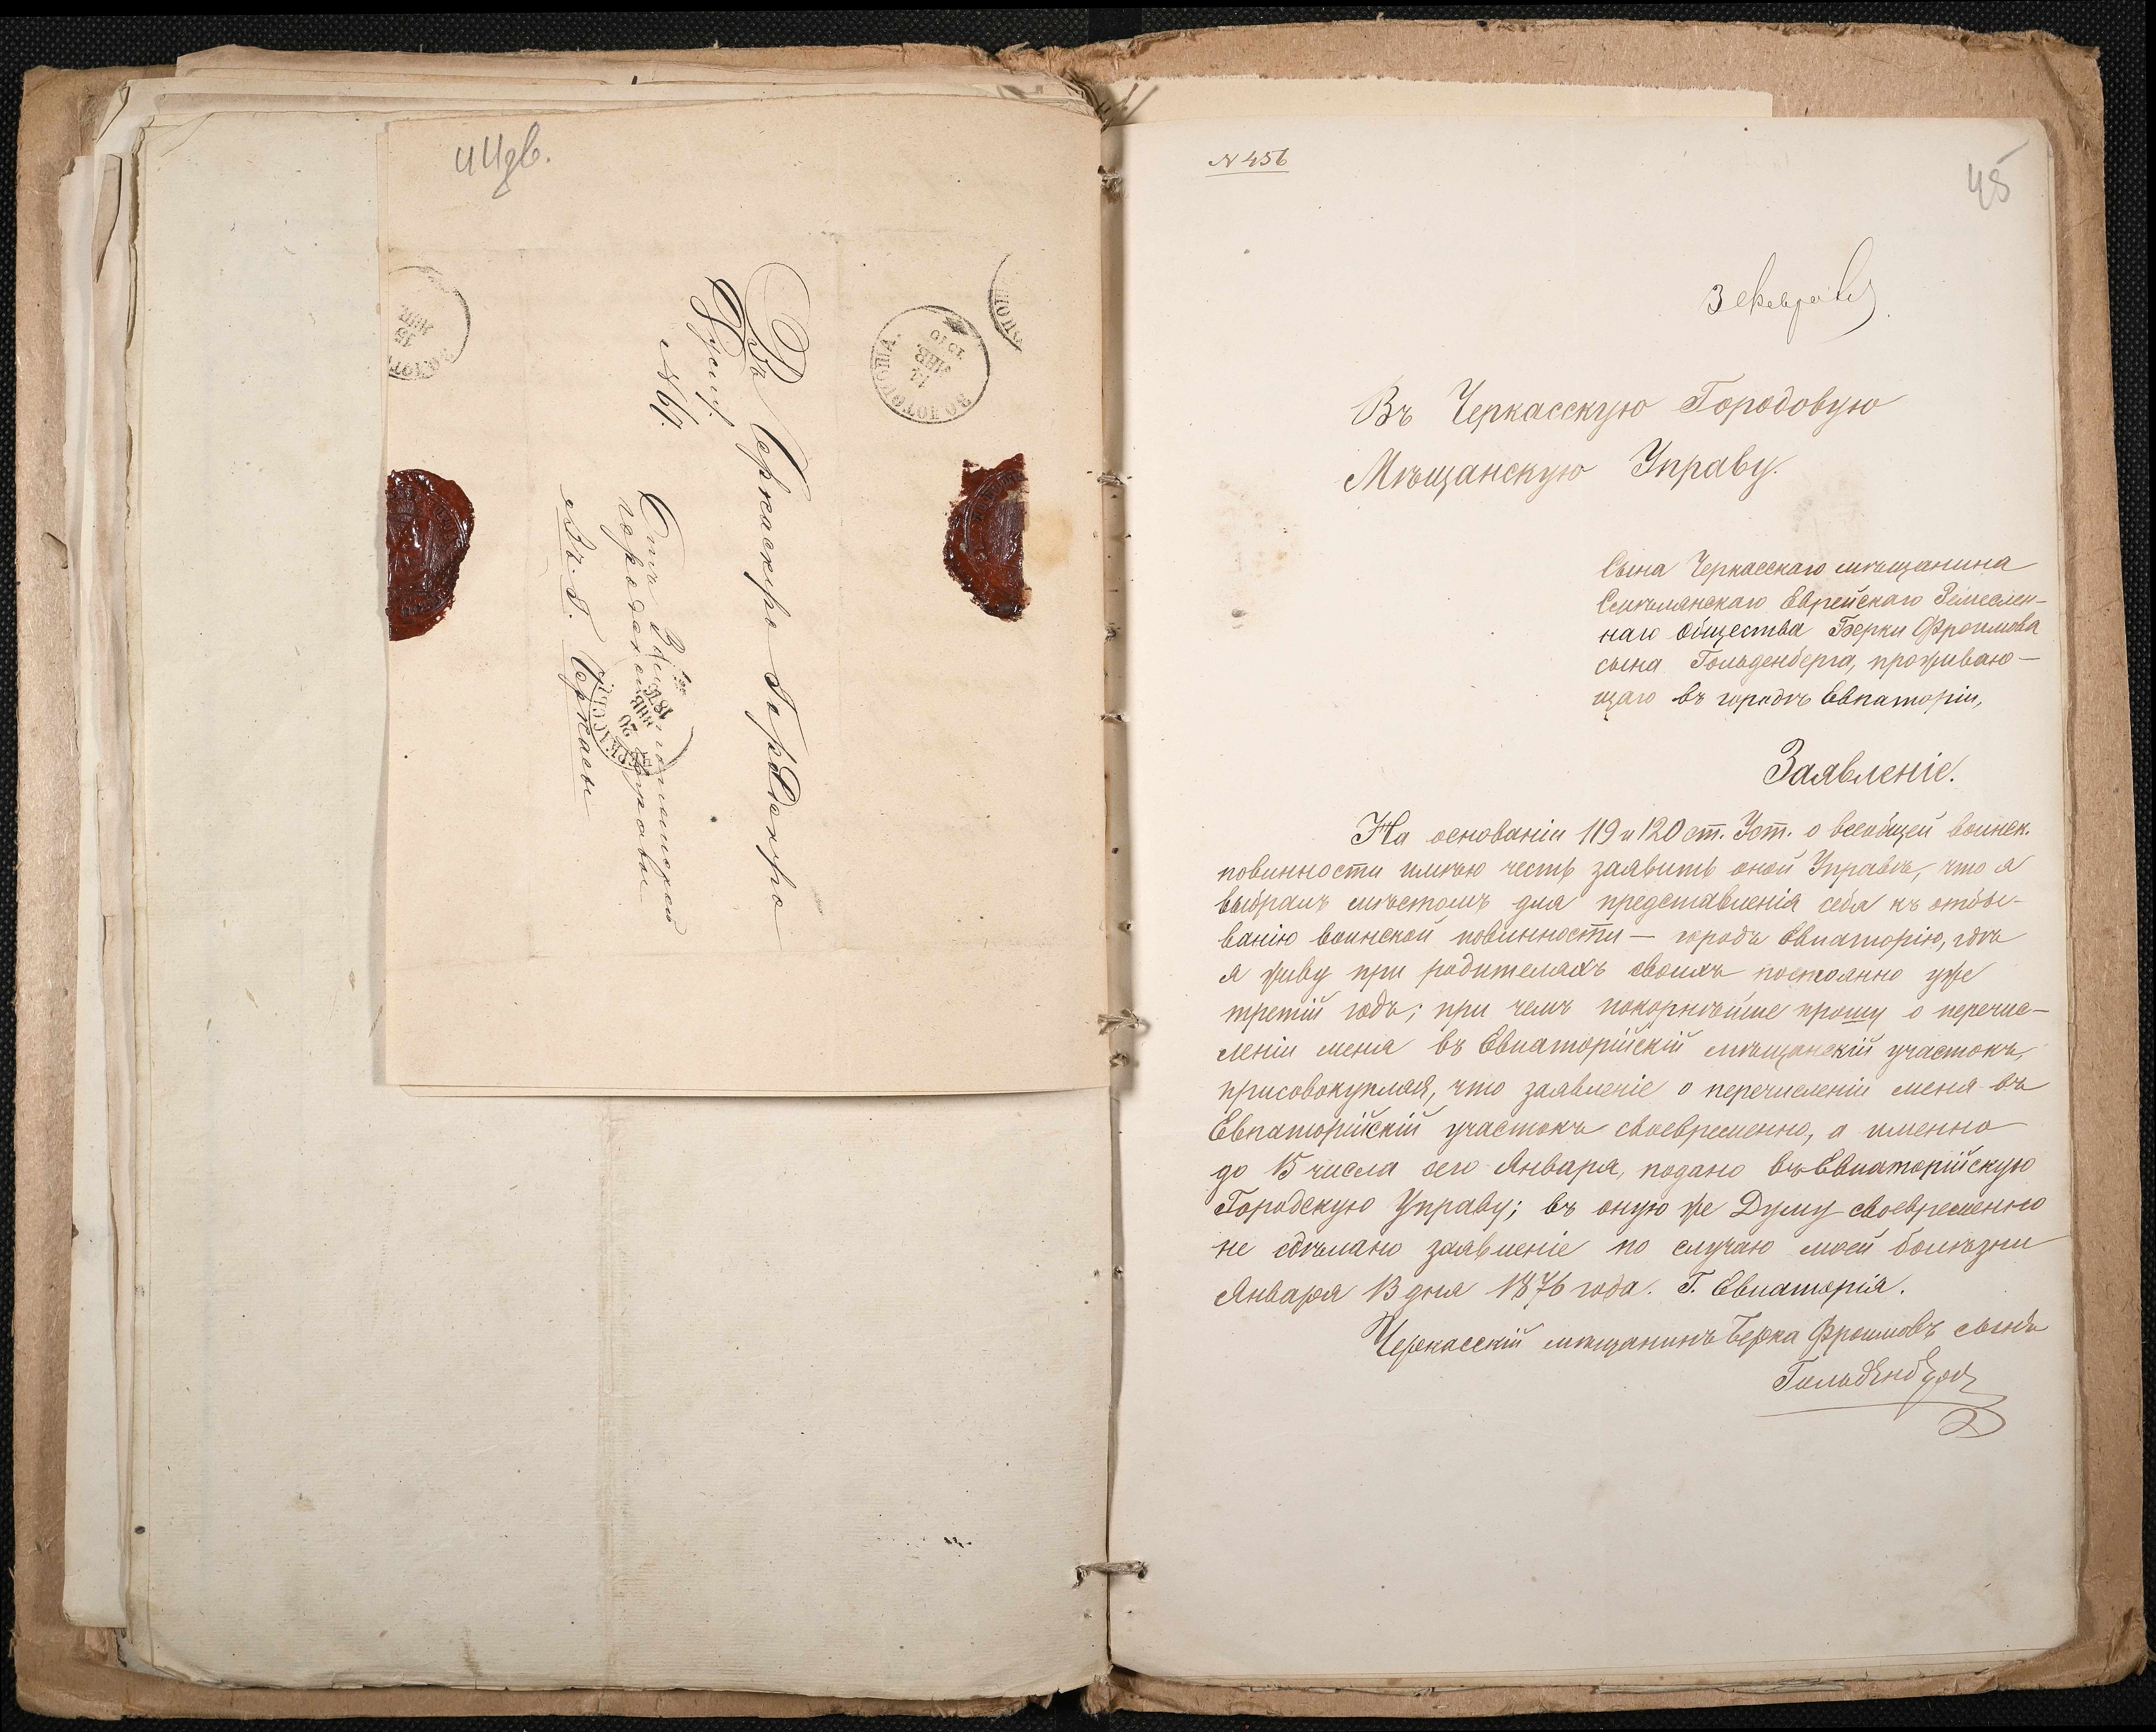 44 зв.
Въ Черкасскую Городскую
Думу.
№ 61.
Отъ Золотоношской
городской Управы
Въ г. Черкасы
ЗОЛОТОНОША.
ЯНВ.
ЯНВ.
20
ЯНВ
№ 456
45
3 февраля
Въ Черкасскую Городовую
Мѣщанскую Управу.
Сына Черкасскаго мѣщанина
Смѣлянскаго Еврейскаго Земеслен-
наго общества Берки Фроимова
сына Гольденберга, проживаю-
щаго въ городѣ Евпаторіи,
Заявленіе.
На основаніи 119 и 120 ст. Уст. о всеобщей воинск.
повинности имѣю честь заявить оной Управѣ, что я
выбралъ мѣстомъ для представленія себя къ отбы-
ванію воинской повинности — городъ Евпаторію, гдѣ
я живу при родителяхъ своихъ постоянно уже
третій годъ; при чемъ покорнѣйше прошу о перечис-
леніи меня въ Евпаторійскій мѣщанскій участокъ,
присовокупляя, что заявленіе о перечисленіи меня въ
Евпаторійскій участокъ своевременно, а именно
до 15 числа сего Января, подано въ Евпаторійскую
Городскую Управу; въ оную же Думу своевременно
не сдѣлано заявленіе по случаю моей болѣзни
Января 13 дня 1876 года. Г. Евпаторія.
Черкасскій мѣщанинъ Берка Фроимовъ сынъ
Гольденберг